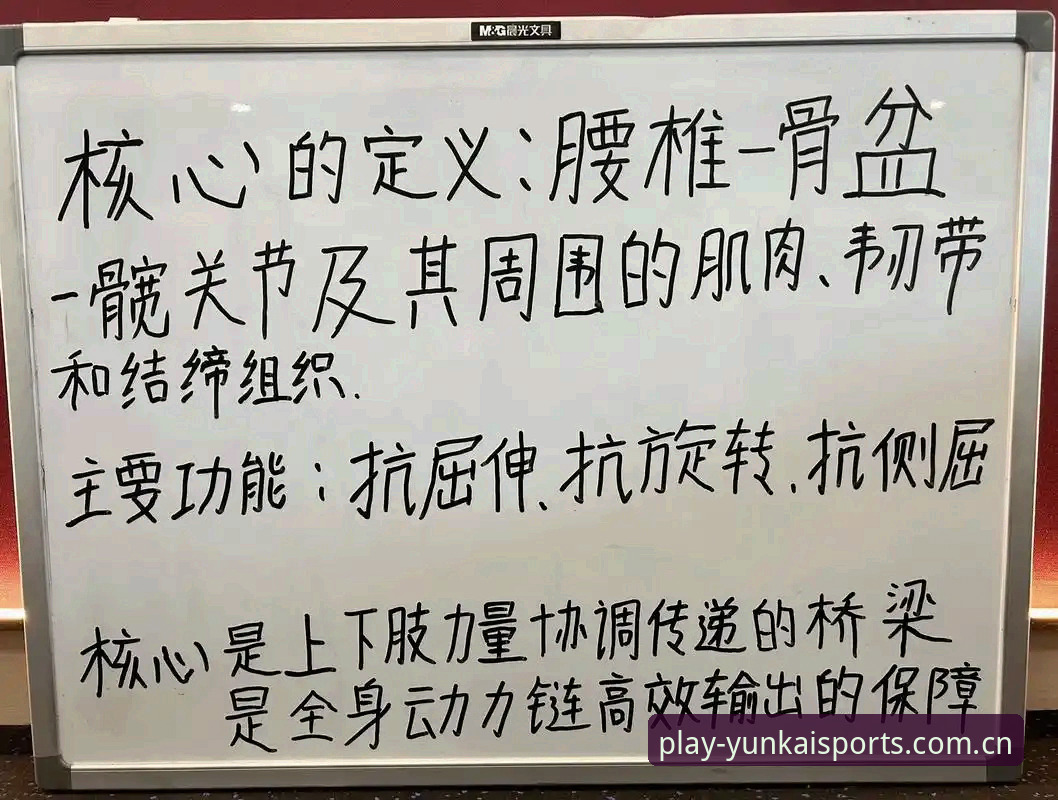 M&G晨光文具
核心的定义:腰椎-骨盆
-髋关节及其周围的肌肉、韧带
和结缔组织.
主要功能:抗屈伸、抗旋转、抗侧屈
核心是上下肢力量协调传递的桥梁
是全身动力链高效输出的保障
play-yunkaisports.com.cn